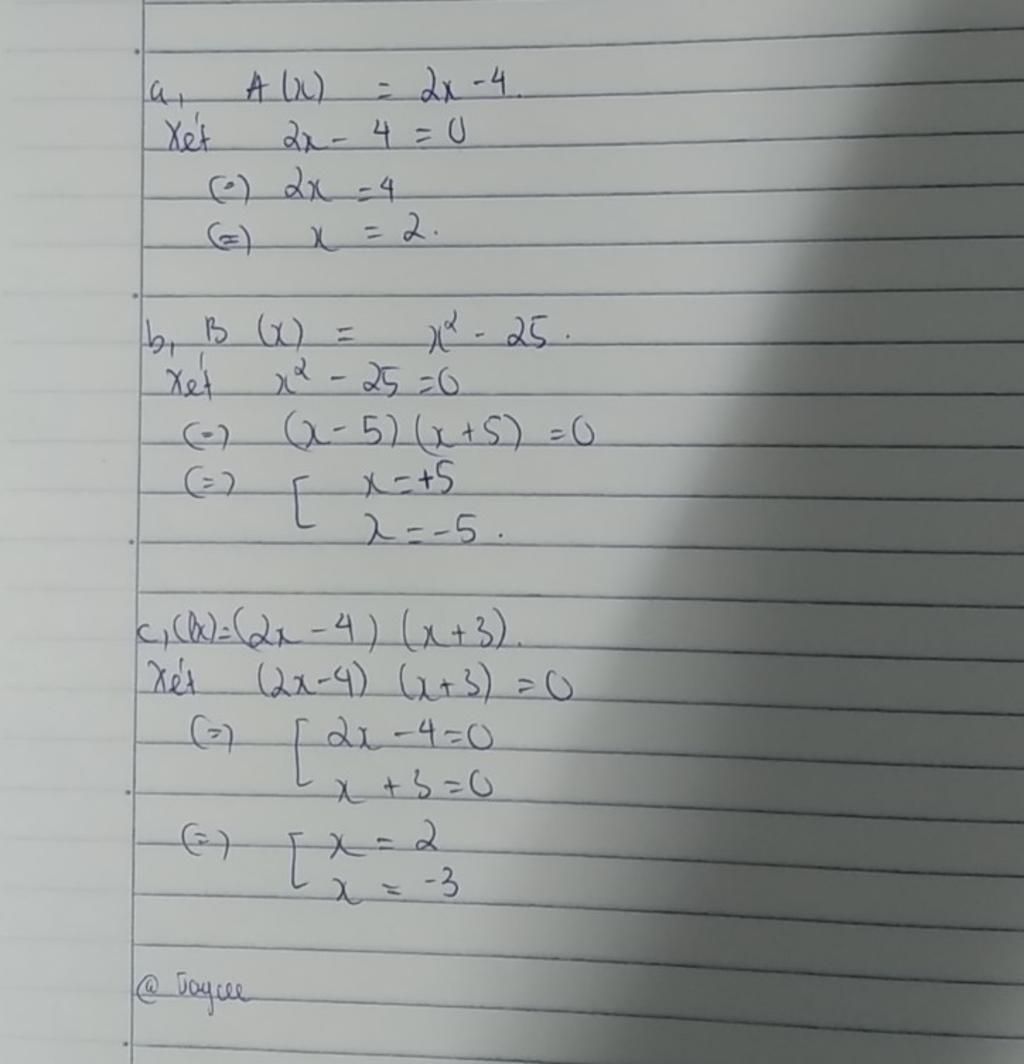 a, A(x) = 2x - 4.
Xét 2x - 4 = 0
(=) 2x = 4
(=) x = 2.
b, B (x) = x² - 25.
Xét x² - 25 = 0
(=) (x - 5) (x + 5) = 0
(=) [ x = +5
x = -5.
c, C(x) = (2x - 4) (x + 3).
Xét (2x - 4) (x + 3) = 0
(=) [ 2x - 4 = 0
x + 3 = 0
(=) [ x = 2
x = -3
@ Jaycee